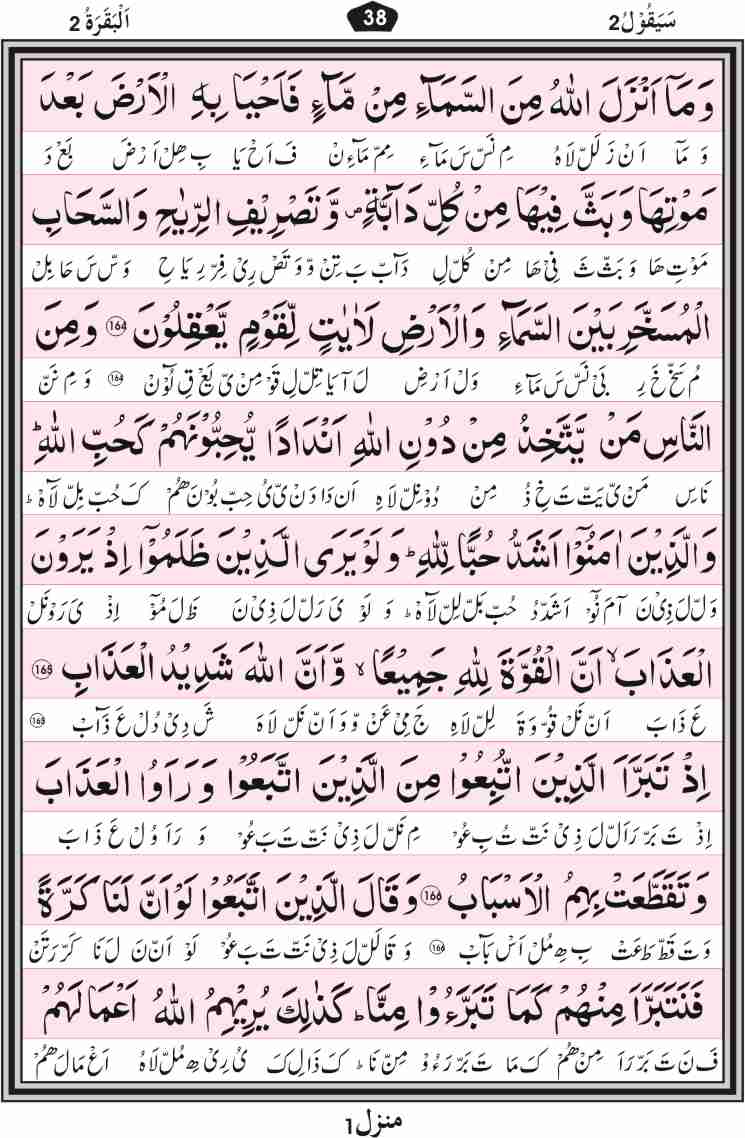 سَيَقُوْلُ2 38 اَلْبَقَرَةُ 2
وَمَاۤ اَنْزَلَ اللّٰهُ مِنَ السَّمَآءِ مِنْ مَّآءٍ فَاَحْيَا بِهِ الْاَرْضَ بَعْدَ
وَ مَآ اَنْ زَ لَلّ لَاهُ مِ نَسّ سَ مَآءِ مِمّ مَآءِنْ فَ اَحْ يَا بِ هِلْ اَرْضَ بَعْ دَ
مَوْتِهَا وَبَثَّ فِيْهَا مِنْ كُلِّ دَآبَّةٍ ص وَّتَصْرِيْفِ الرِّيٰحِ وَالسَّحَابِ
مَوْتِ هَا وَ بَثّ ثَ فِىْ هَا مِنْ كُلّ لِ دَآبّ بَ تِنْ وّ وَ تَصْ رِىْ فِرّ رِ يَا حِ وَسّ سَ حَا بِلْ
الْمُسَخَّرِ بَيْنَ السَّمَآءِ وَالْاَرْضِ لَاٰيٰتٍ لِّقَوْمٍ يَّعْقِلُوْنَ 164 وَمِنَ
مُ سَخّ خَ رِ بَىْ نَسّ سَ مَآءِ وَلْ اَرْضِ لَ آ يَا تِلّ لِ قَوْ مِنْ ىّ يَعْ قِ لُوْٓنْ 164 وَ مِ نَنّ
النَّاسِ مَنْ يَّتَّخِذُ مِنْ دُوْنِ اللّٰهِ اَنْدَادًا يُّحِبُّوْنَهُمْ كَحُبِّ اللّٰهِ ؕ
نَاسِ مَنْ ىّ يَتّ تَ خِ ذُ مِنْ دُوْنِلّ لَاهِ اَنْ دَا دَنْ ىّ يُ حِبّ بُوْنَ هُمْ كَ حُبّ بِلّ لَآهْ ؕ
وَالَّذِيْنَ اٰمَنُوْۤا اَشَدُّ حُبًّا لِّلّٰهِ ؕ وَلَوْ يَرَى الَّذِيْنَ ظَلَمُوْۤا اِذْ يَرَوْنَ
وَلّ لَ ذِىْ نَ آ مَ نُوْٓ اَشَدّ دُ حُبّ بَلّ لِلّ لَآهْ ؕ وَ لَوْ يَ رَلّ لَ ذِىْ نَ ظَ لَ مُوْٓ اِذْ يَ رَوْنَلْ
الْعَذَابَ ۙ اَنَّ الْقُوَّةَ لِلّٰهِ جَمِيْعًا ۙ وَّاَنَّ اللّٰهَ شَدِيْدُ الْعَذَابِ 165
عَ ذَا بَ اَنّ نَلْ قُوّ وَ ةَ لِلّ لَاهِ جَ مِىْ عَنْ وّ وَ اَنّ نَلّ لَا هَ شَ دِىْ دُلْ عَ ذَآبْ 165
اِذْ تَبَرَّاَ الَّذِيْنَ اتُّبِعُوْا مِنَ الَّذِيْنَ اتَّبَعُوْا وَرَاَوُا الْعَذَابَ
اِذْ تَ بَرّ رَ اَلّ لَ ذِىْ نَتّ تُ بِ عُوْ مِ نَلّ لَ ذِىْ نَتّ تَ بَ عُوْ وَ رَ اَ وُ لْ عَ ذَا بَ
وَتَقَطَّعَتْ بِهِمُ الْاَسْبَابُ 166 وَقَالَ الَّذِيْنَ اتَّبَعُوْا لَوْ اَنَّ لَنَا كَرَّةً
وَ تَ قَطّ طَ عَتْ بِ هِ مُلْ اَسْ بَآبْ 166 وَ قَا لَلّ لَ ذِىْ نَتّ تَ بَ عُوْ لَوْ اَنّ نَ لَ نَا كَرّ رَ تَنْ
فَنَتَبَرَّاَ مِنْهُمْ كَمَا تَبَرَّءُوْا مِنَّا ؕ كَذٰلِكَ يُرِيْهِمُ اللّٰهُ اَعْمَالَهُمْ
فَ نَ تَ بَرّ رَ اَ مِنْ هُمْ كَ مَا تَ بَرّ رَ ءُ وْ مِنّ نَا ؕ كَ ذَالِ كَ يُ رِىْ هِ مُلّ لَاهُ اَعْ مَالَ هُمْ
منزل 1